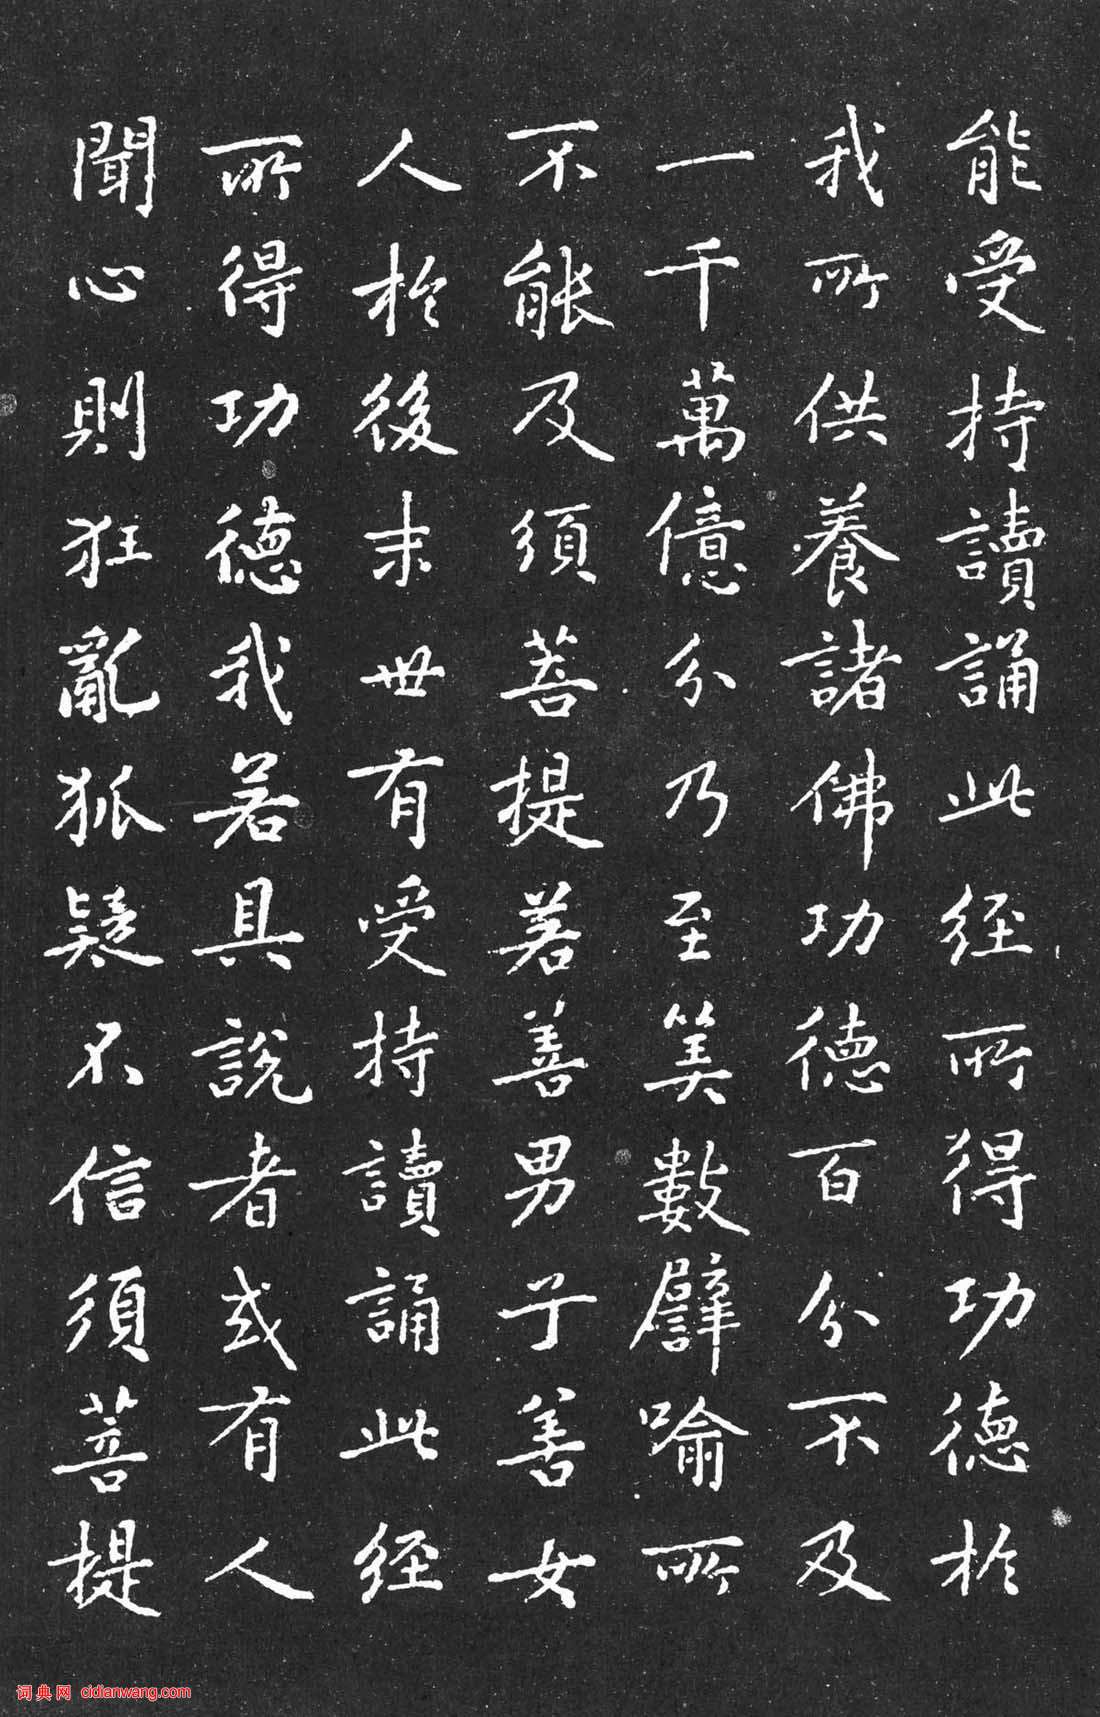 能受持讀誦此經所得功德於
我所供養諸佛功德百分不及
一千萬億分乃至筭數譬喻所
不能及須菩提若善男子善女
人於後末世有受持讀誦此經
所得功德我若具說者或有人
聞心則狂亂狐疑不信須菩提
词典网 cidianwang.com